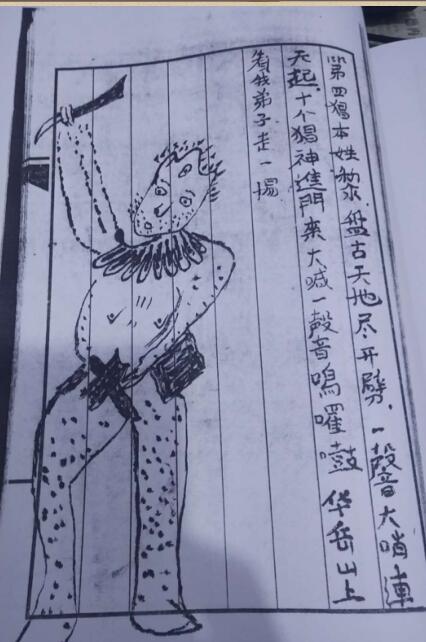 第四猖本姓黎.盘古天地尽开劈.一聲音大哨連
天起.十个猖神進門來大喊一聲音鳴囉鼓 华岳山上
看我弟子走一場